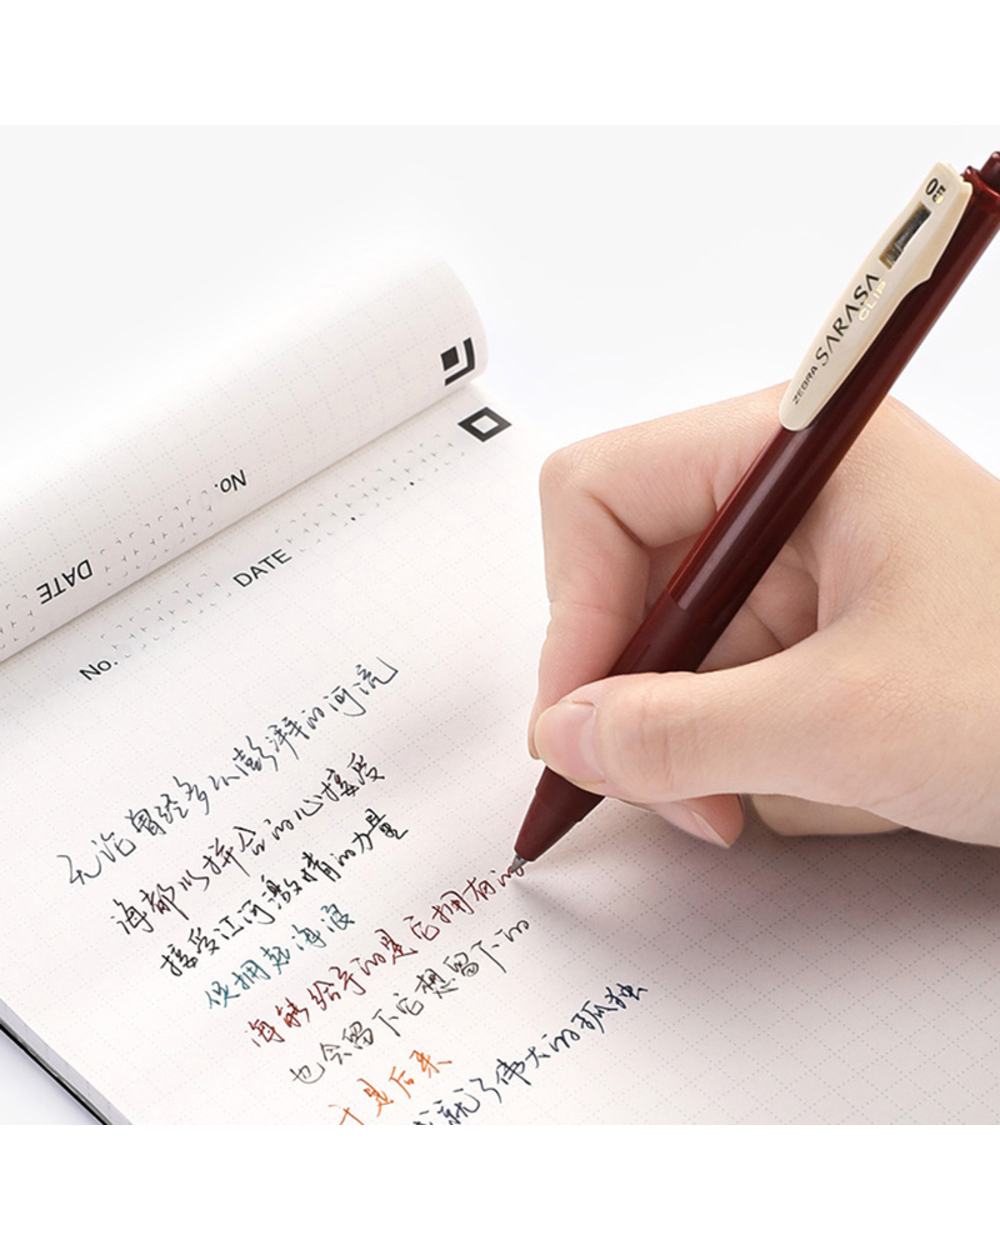 0.5
ZEBRA SARASA
CLIP
No.
DATE
No.
DATE
无论曾经多么澎湃的河流
海都以拼合的心接受
接受江河激情的力量
便拥起海浪
海能给予的是它拥有的
也会留下它想留下的
于是后来
成就了伟大的孤独